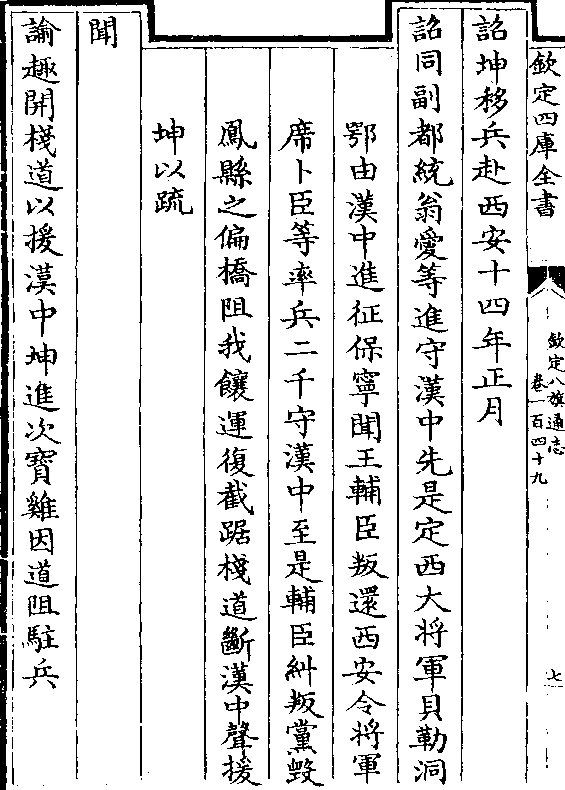 欽定四庫全書
欽定八旗通志
卷一百四十九
七
詔坤移兵赴西安十四年正月
詔同副都統翁愛等進守漢中先是定西大将軍貝勒洞
鄂由漢中進征保寧聞王輔臣叛還西安令将軍
席卜臣等率兵二千守漢中至是輔臣糾叛黨毀
鳳縣之偏橋阻我饟運復截踞棧道斷漢中聲援
坤以疏
聞
諭趣開棧道以援漢中坤進次寶雞因道阻駐兵